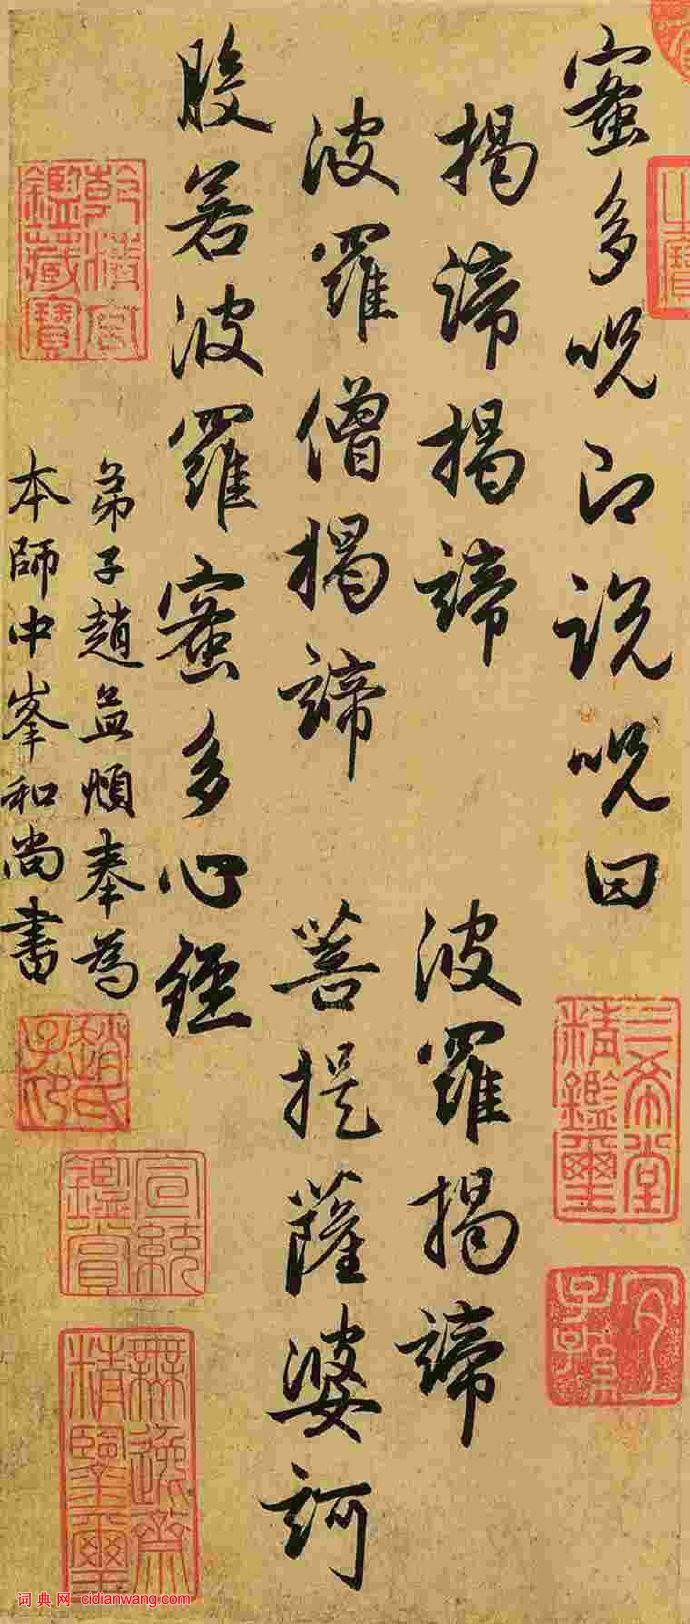 蜜多呪即說呪曰
揭諦揭諦 波羅揭諦
波羅僧揭諦 菩提薩婆訶
般若波羅蜜多心經
弟子趙孟頫奉為
本師中峯和尚書
三希堂精鑑璽
宜子孫
乾清宮鑑藏寶
趙氏子昂
宣統鑑賞
無逸齋精鑒璽
词典网 cidianwang.com